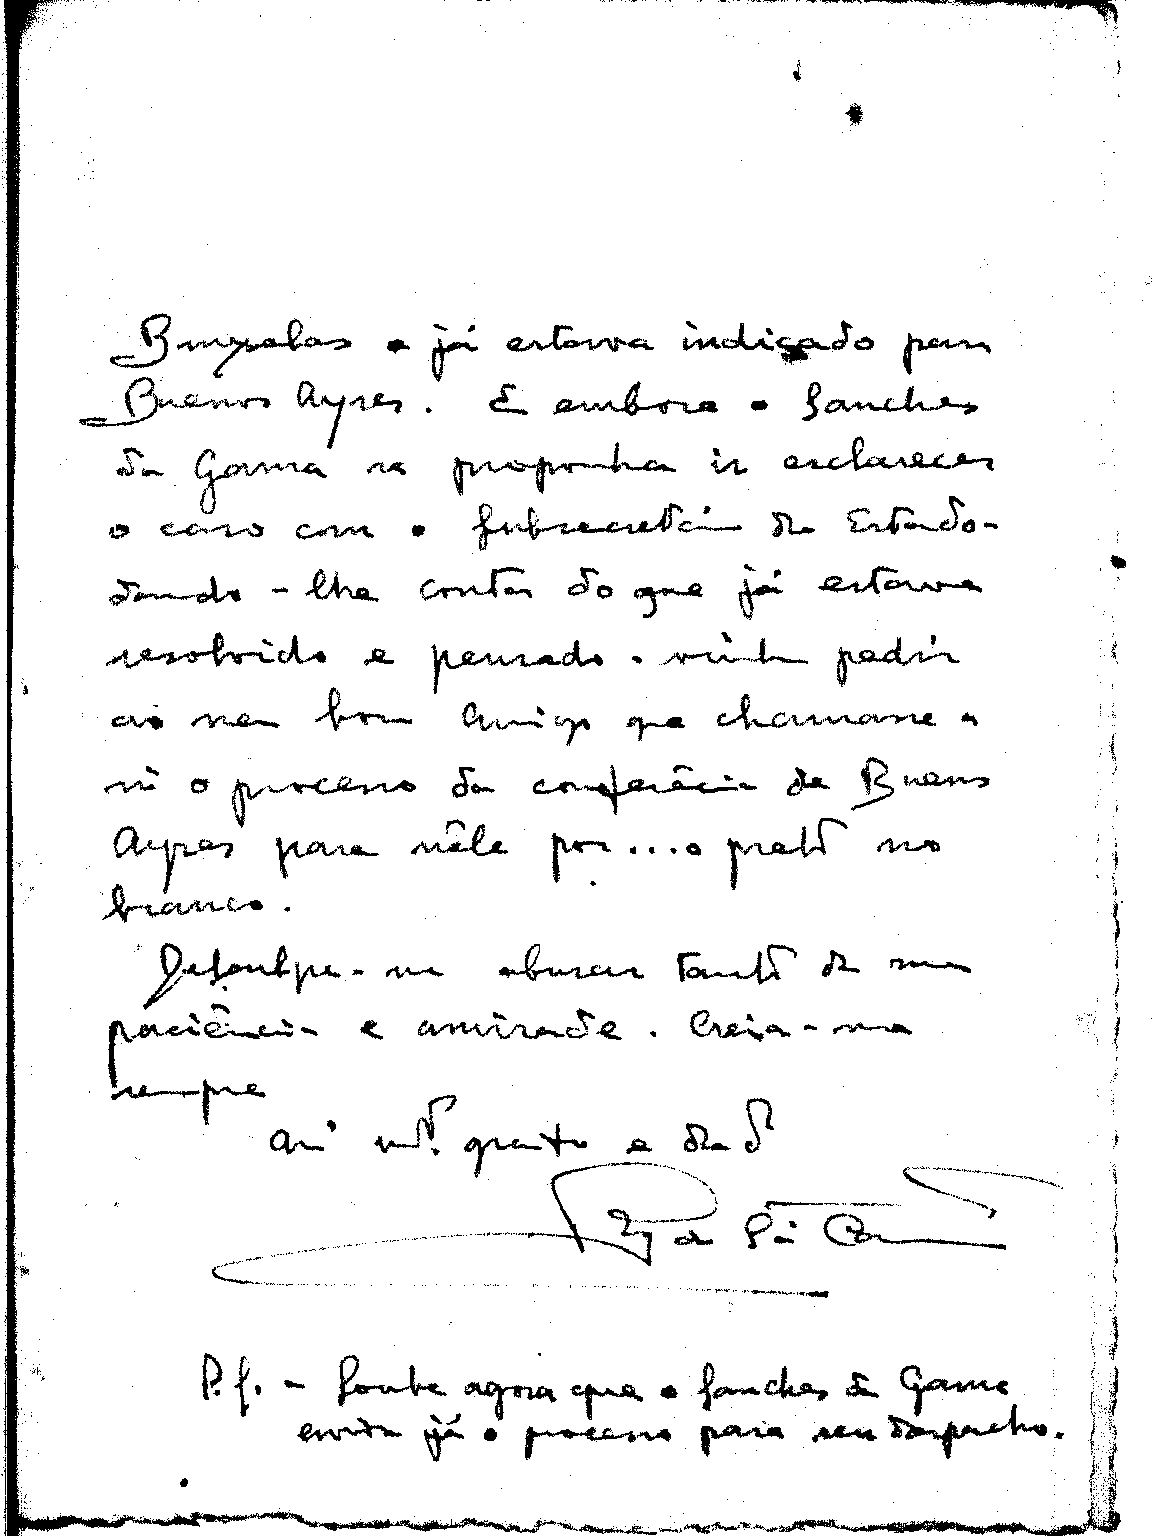 Bruxelas e já estava indicado para
Buenos Ayres. E embora o Sanches
da Gama se proponha ir esclarecer
o caso com o Subsecretário de Estado-
dando-lhe contas do que já estava
resolvido e pensado. vinha pedir
ao meu bom Amigo que chamasse a
si o processo da conferência de Buenos
Ayres para nêle pôr....o preto no
branco.
Desculpe-me abusar tanto da sua
paciência e amizade. Creia-me
sempre
Amº mtº. grato e ded
Ruy de Sá Carneiro
P.S. - Soube agora que o Sanches da Gama
envia já o processo para seu despacho.